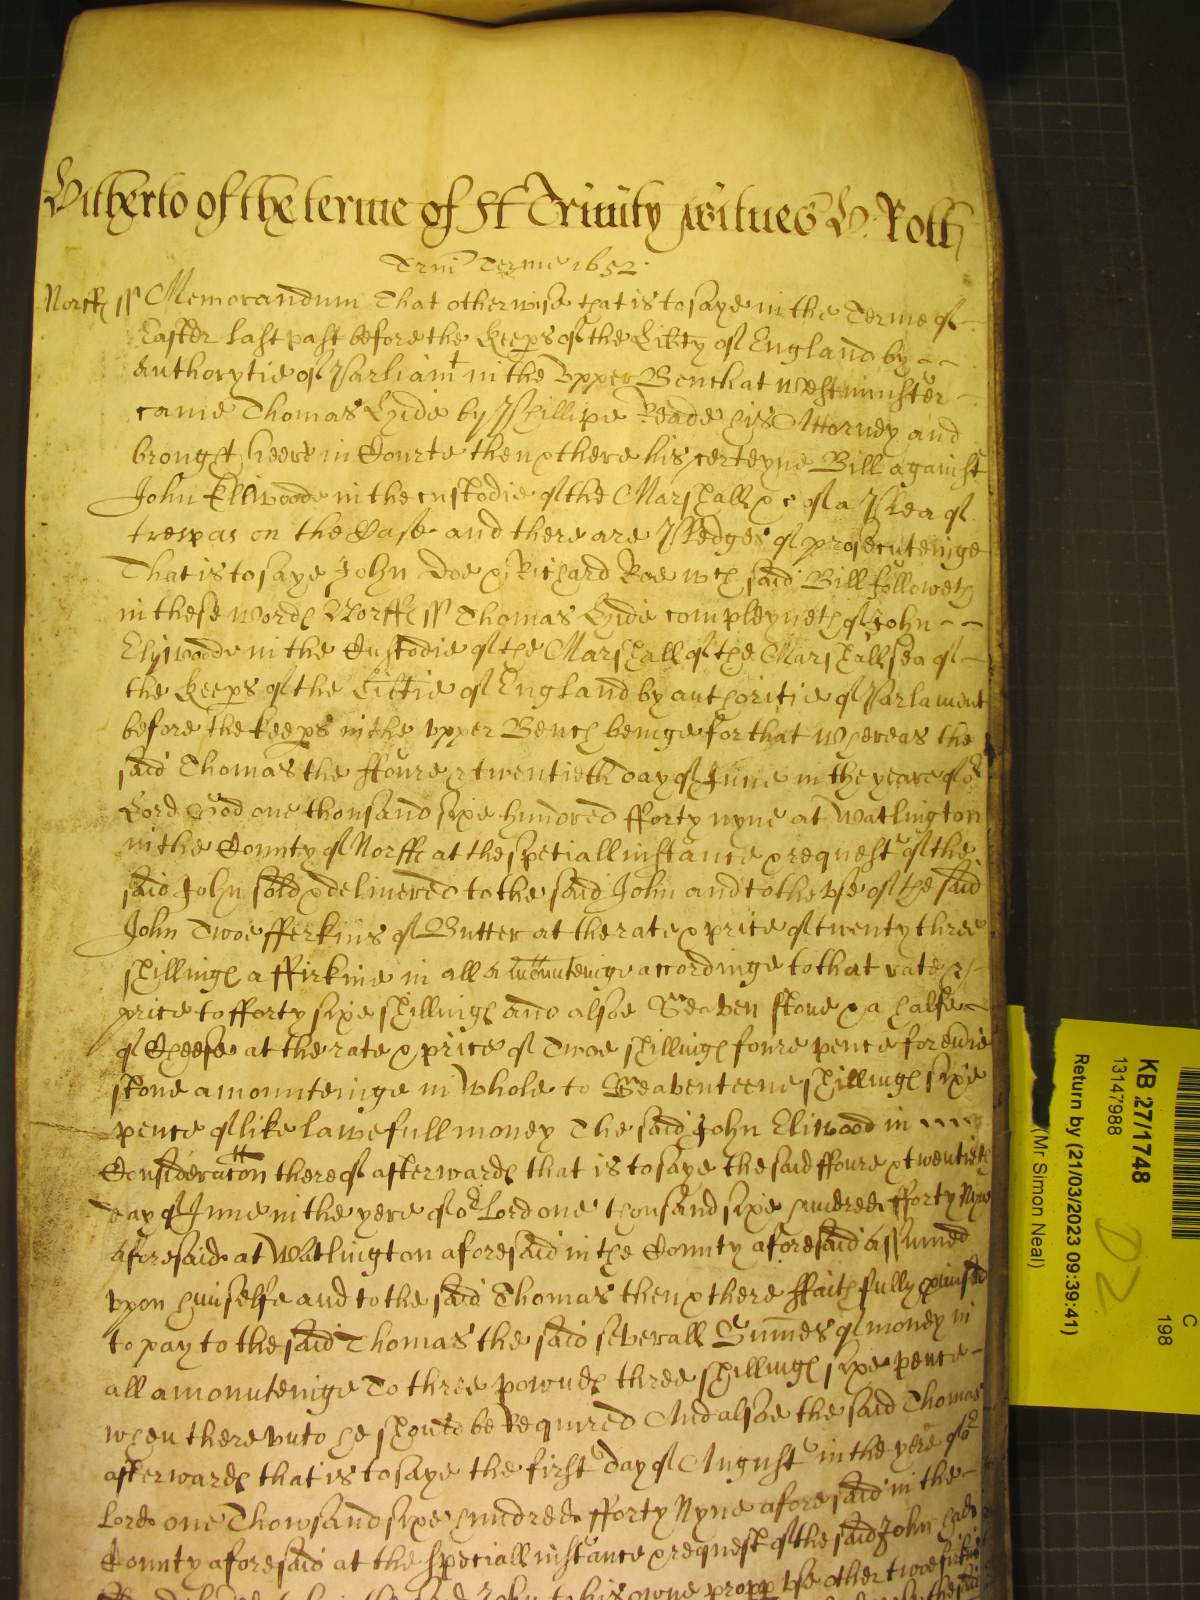 Hitherto of the terme of St Trinity witnes H: Rolle
Trin Terme 1652
Norff ss Memorandum That otherwise that is to saye in the Terme of
Easter last past before the Keeps of the Libty of England by
Authorytie of Parliamt in the Upper Bench at Westminster
came Thomas Hide by Phillipe Reade his Attorney and
brought heere in Courte then & there his certeyne Bill against
John Elliwoode in the custodie of the Marshall &c of a Plea of
trespas on the Case and there are Pledges of prosecuteinge
That is to saye John Doe & Richard Roe wch said Bill followeth
in these words Norff ss Thomas Hide compleyneth of John
Elywoode in the Custodie of the Marshall of the Marshallsea of
the Keeps of the Libtie of England by authoritie of Parlament
before the keeps in the upper Bench beinge for that whereas the
said Thomas the ffoure & twentieth day of June in the yeare of or
Lord God one thousand sixe hundred fforty nyne at Watlington
in the County of Norff at the speciall instance & request of the
said John sold & delivered to the said John and to the use of the said
John Twoe fferkins of Butter at the rate & price of twenty three
shillings a ffirkine in all amounteinge accordinge to that rate &
price to fforty sixe shillings and alsoe Seaven stone & a halfe
of Cheese at the rate & price of Twoe shillings foure pence for evie
stone amounteinge in whole to Seaventeene shillings sixe
pence of like lawefull money The said John Eliwood in
Consideracon thereof afterwards that is to saye the said ffoure & twentieth
day of June in the yere of or Lord one thousand sixe hundred fforty Nyne
aforesaid at Watlington aforesaid in the County aforesaid assumed
upon himselfe and to the said Thomas then & there ffaithfully pmised
to pay to the said Thomas the said severall Sumes of money in
all amounteinge To three pownds three shillings sixe pence
when thereunto he should be Required And alsoe the said Thomas
afterwards that is to saye the first day of August in the yere of or
Lord one Thowsand sixe hundred fforty Nyne aforesaid in the
County aforesaid at the speciall instance & request of the said John had
to his owne propp use other twoe firkins
KB 27/1748
13147988
Return by (21/03/2023 09:39:41)
(Mr Simon Neal)
C
198
D2